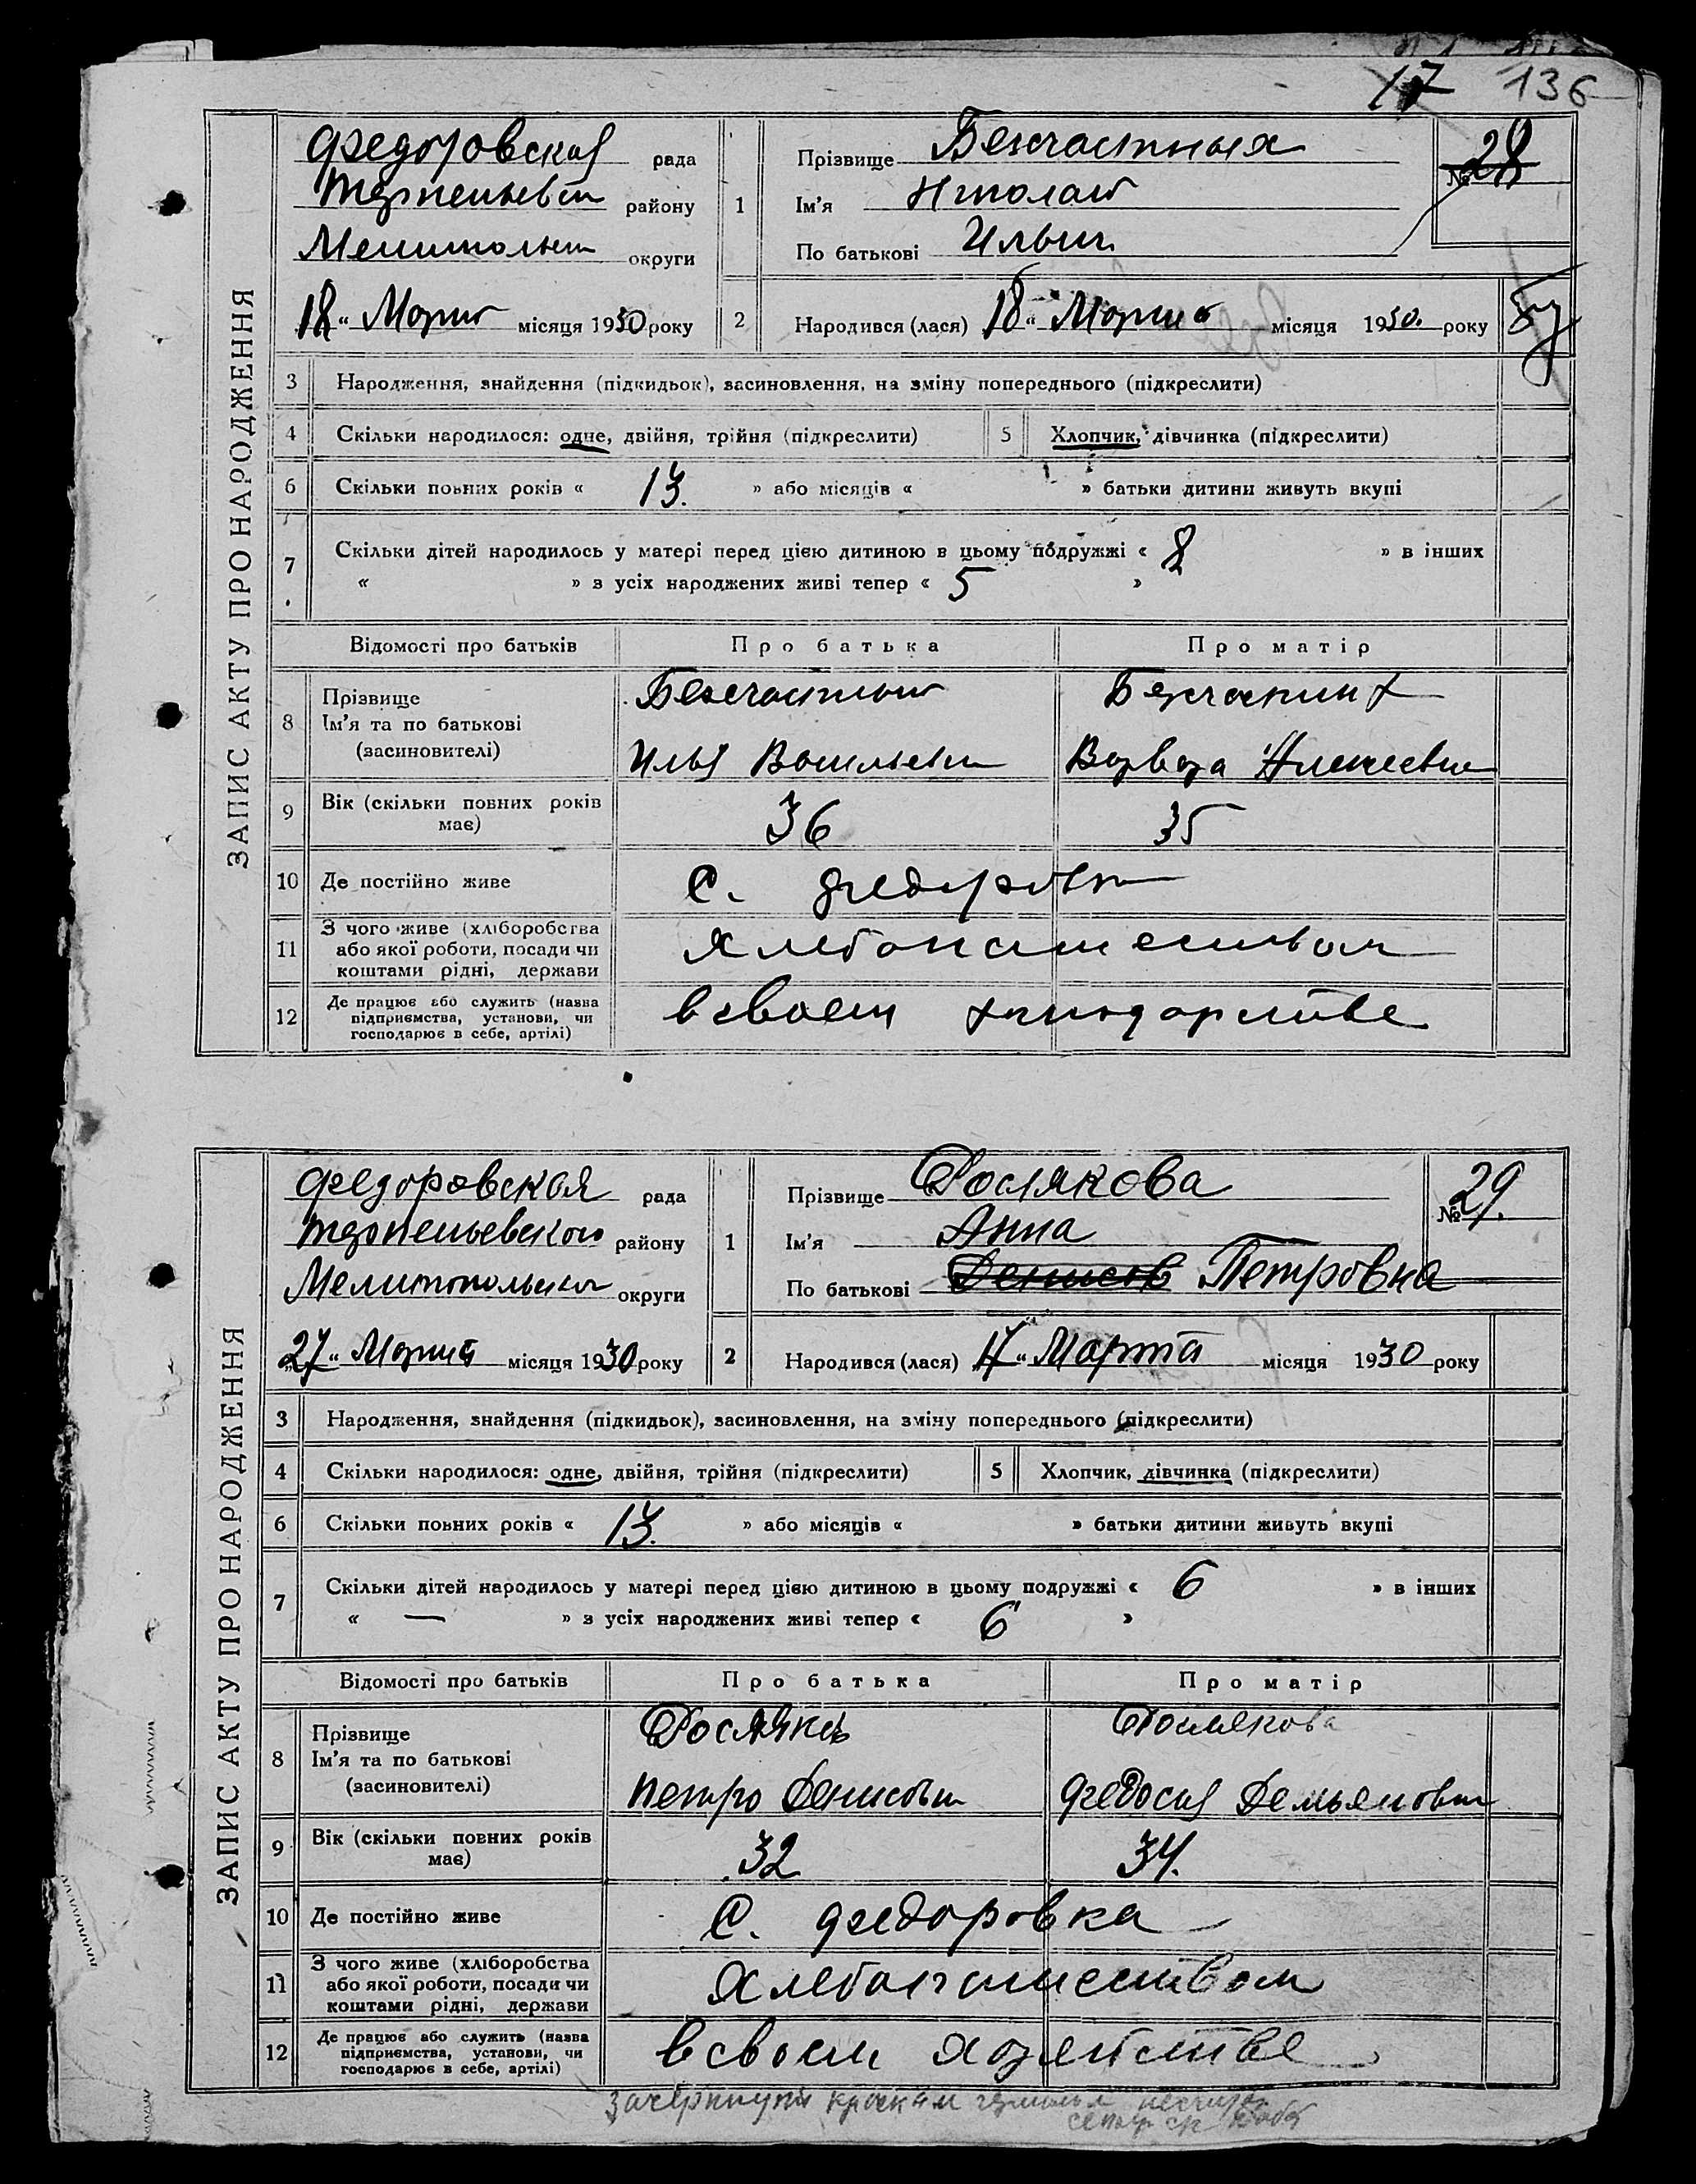 17 136
Федоровская рада
района
Мелитопольск округи
18 „ Марта місяця 1930 року
1
Прізвище Безчастных
Ім'я Николай
По батькові Ильич
№ 28
2 Народився (лася) 18 „ Марта місяця 1930. року
ЗАПИС АКТУ ПРО НАРОДЖЕННЯ
3 Народження, знайдення (підкидьок), засиновлення, на зміну попереднього (підкреслити)
4 Скільки народилося: одне, двійня, трійня (підкреслити) 5 Хлопчик, дівчинка (підкреслити)
6 Скільки повних років « 13. » або місяців « » батьки дитини живуть вкупі
7 Скільки дітей народилось у матері перед цією дитиною в цьому подружжі « 8 » в інших
« » з усіх народжених живі тепер « 5 »
Відомості про батьків Про батька Про матір
8 Прізвище
Ім'я та по батькові
(засиновителі)
Безчастный
Илья Васильевич
Безчастных
Варвара Алексеевна
9 Вік (скільки повних років має) 36 35
10 Де постійно живе с. Федоровка
11 З чого живе (хліборобства
або якої роботи, посади чи
коштами рідні, держави
Хлебопашеством
12 Де працює або служить (назва
підприємства, установи, чи
господарює в себе, артілі)
в своем господарстве
Федоровская рада
Терпеньевского району
Мелитопольской округи
„27„ Марта місяця 1930 року
1
Прізвище Рослякова
Ім'я Анна
По батькові Денисов Петровна
№ 29.
2 Народився (лася) 17„ Марта місяця 1930 року
ЗАПИС АКТУ ПРО НАРОДЖЕННЯ
3 Народження, знайдення (підкидьок), засиновлення, на зміну попереднього (підкреслити)
4 Скільки народилося: одне, двійня, трійня (підкреслити) 5 Хлопчик, дівчинка (підкреслити)
6 Скільки повних років « 13. » або місяців « » батьки дитини живуть вкупі
7 Скільки дітей народилось у матері перед цією дитиною в цьому подружжі « 6 » в інших
« — » з усіх народжених живі тепер « 6 »
Відомості про батьків Про батька Про матір
8 Прізвище
Ім'я та по батькові
(засиновителі)
Росляков
Петро Денисович
Рослякова
Федосия Демьяновна
9 Вік (скільки повних років має) 32 34.
10 Де постійно живе с. Федоровка
11 З чого живе (хліборобства
або якої роботи, посади чи
коштами рідні, держави
Хлебопашеством
12 Де працює або служить (назва
підприємства, установи, чи
господарює в себе, артілі)
в своем хозяйстве